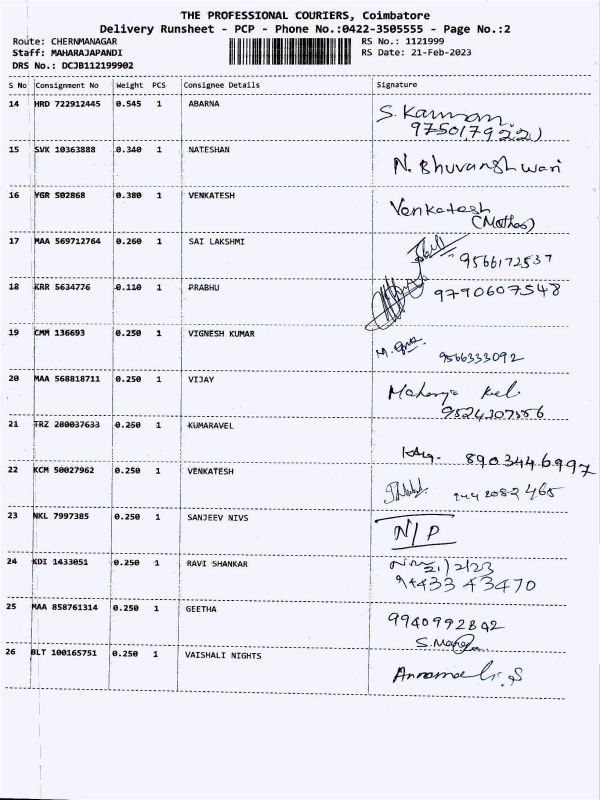 THE PROFESSIONAL COURIERS, Coimbatore
Delivery Runsheet - PCP - Phone No.:0422-3505555 - Page No.:2
Route: CHERNMANAGAR RS No.: 1121999
Staff: MAHARAJAPANDI RS Date: 21-Feb-2023
DRS No.: DCJB112199902
S No Consignment No Weight PCS Consignee Details Signature
14 HRD 722912445 0.545 1 ABARNA S. Kannan
9750179221
15 SVK 10363888 0.340 1 NATESHAN N. Bhuvaneshwari
16 YGR 502868 0.380 1 VENKATESH Venkatesh
(Mother)
17 MAA 569712764 0.260 1 SAI LAKSHMI 9566172537
18 KRR 5634776 0.110 1 PRABHU 9790607548
19 CMM 136693 0.250 1 VIGNESH KUMAR 9566333092
20 MAA 568818711 0.250 1 VIJAY
9524307556
21 TRZ 200037633 0.250 1 KUMARAVEL 8903446997
22 KCM 50027962 0.250 1 VENKATESH
23 NKL 7997385 0.250 1 SANJEEV NIVS N/P
24 KDI 1433051 0.250 1 RAVI SHANKAR 21/2/23
94433 43470
25 MAA 858761314 0.250 1 GEETHA 9940992842
26 BLT 100165751 0.250 1 VAISHALI NIGHTS